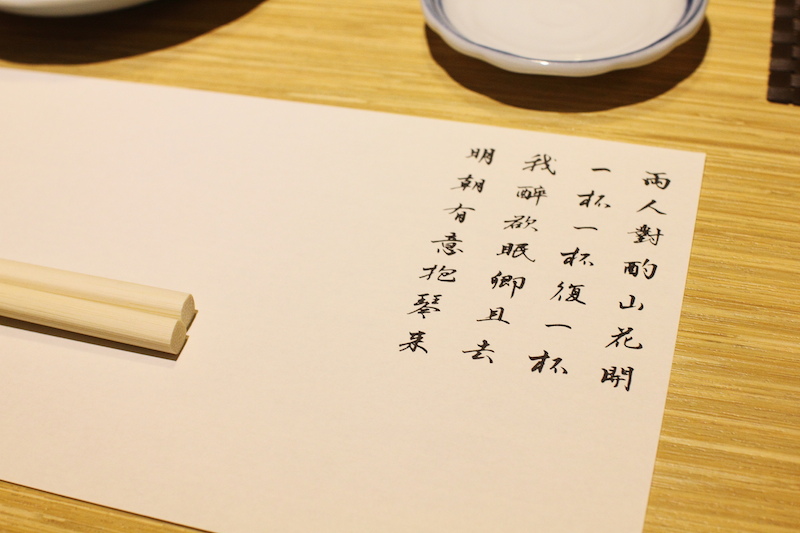 両人對酌山花開
一杯一杯復一杯
我醉欲眠卿且去
明朝有意抱琴来